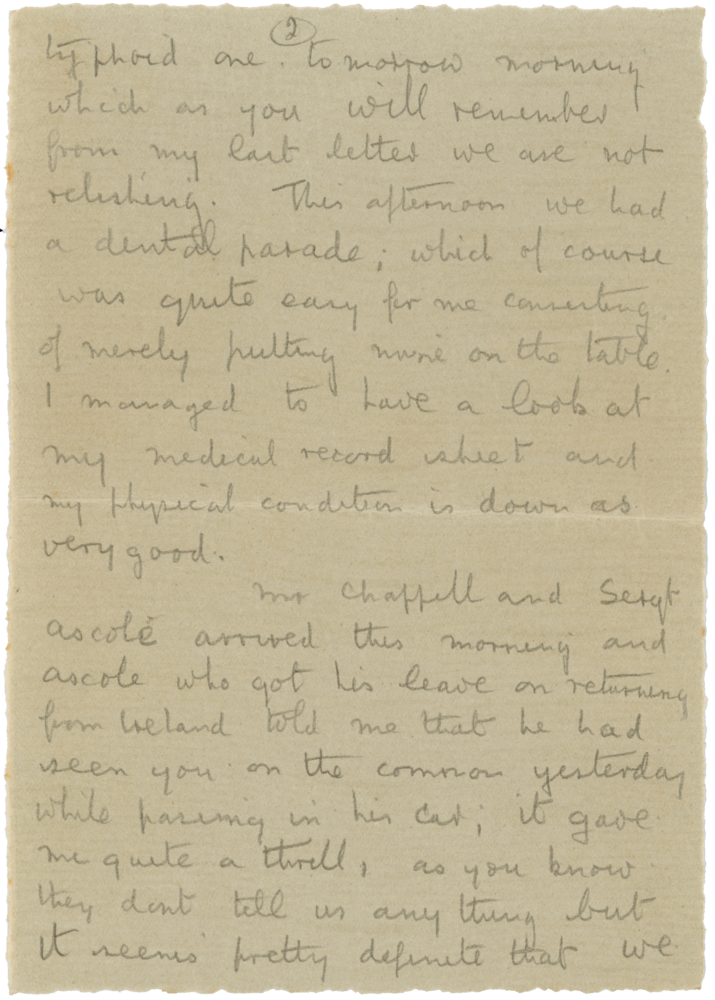 2
typhoid one. tomorrow morning
which as you will remember
from my last letter we are not
relishing. This afternoon we had
a dental parade; which of course
was quite easy for me consisting
of merely putting mine on the table.
I managed to have a look at
my medical record sheet and
my physical condition is down as
very good.
Mr Chappell and Sergt
ascole arrived this morning and
ascole who got his leave on returning
from Ireland told me that he had
seen you on the common yesterday
while passing in his car; it gave
me quite a thrill, as you know
they dont tell us any thing but
it seems pretty definite that we